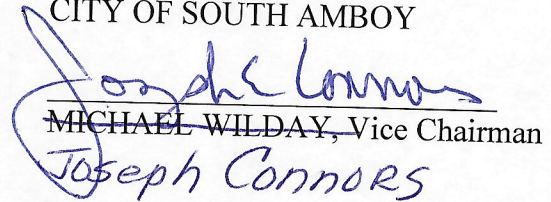 CITY OF SOUTH AMBOY
Joseph Connors
MICHAEL WILDAY, Vice Chairman
Joseph Connors